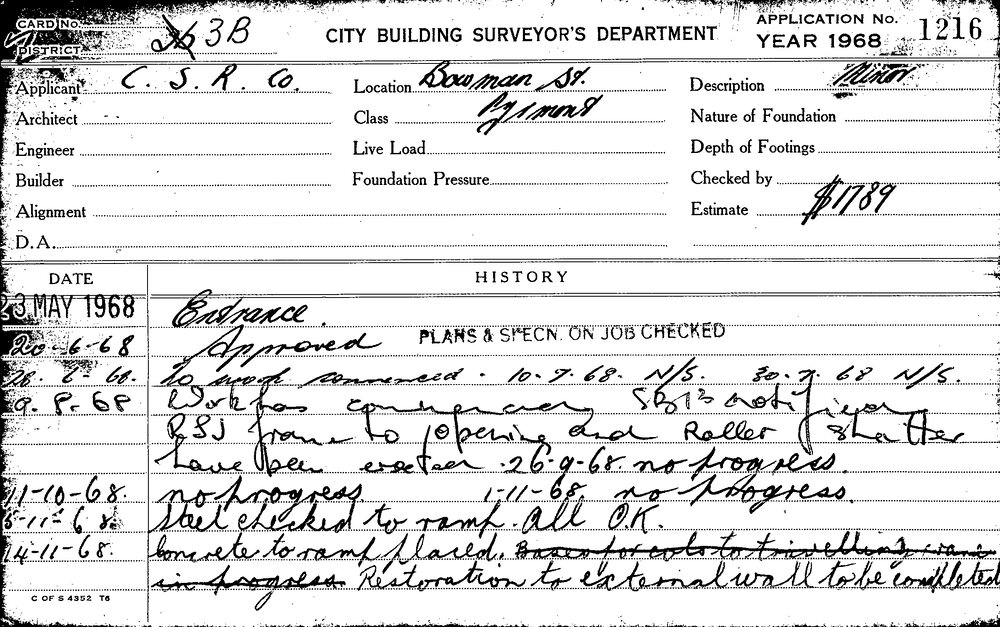 CARD No.
DISTRICT
3B
CITY BUILDING SURVEYOR'S DEPARTMENT
APPLICATION No. 1216
YEAR 1968
Applicant C. S. R. Co. Location Bowman St. Description Minor
Architect Class Pyrmont Nature of Foundation
Engineer Live Load Depth of Footings
Builder Foundation Pressure Checked by
Alignment Estimate $1789
D.A.
DATE HISTORY
23 MAY 1968 Entrance.
20-6-68 Approved PLANS & SPECN. ON JOB CHECKED
28. 6. 68. No work commenced. 10.7.68. N/S. 30.7.68 N/S.
9.8.68 Work has commenced notified
RSJ frame to opening and Roller Shutter
have been erected. 26-9-68. no progress.
11-10-68. no progress 1-11-68. no progress.
5-11-68. Steel checked to ramp. All O.K.
14-11-68. Concrete to ramp placed. Bases for cols to travelling crane
in progress. Restoration to external wall to be completed
C OF S 4352 T6